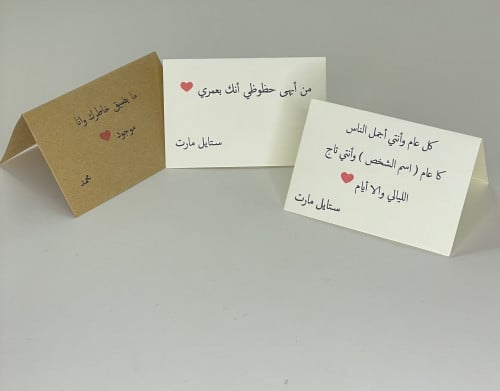 ما يضيق خاطرك وانا
موجود
محمد
من أبهى حظوظي أنك بعمري
ستايل مارت
كل عام وأنتي أجمل الناس
كا عام ( اسم الشخص ) وأنتي تاج
الليالي والا أيام
ستايل مارت